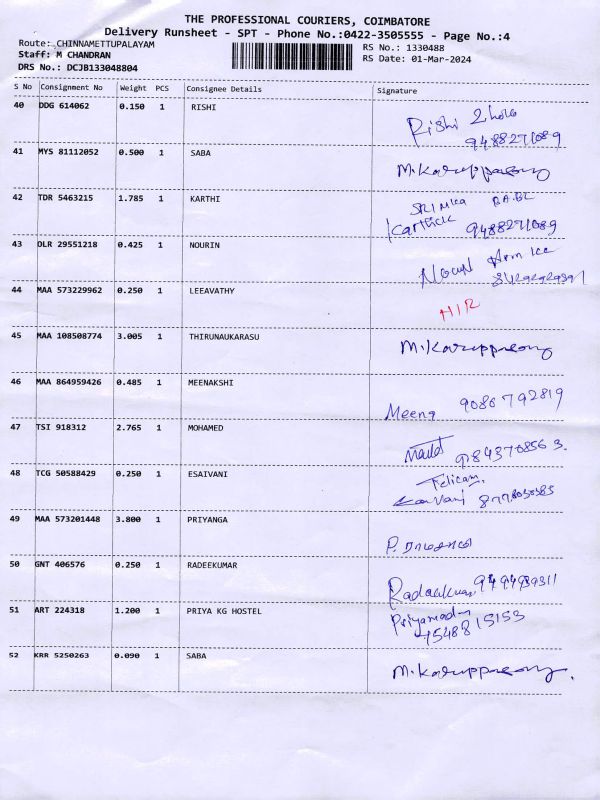 THE PROFESSIONAL COURIERS, COIMBATORE
Delivery Runsheet - SPT - Phone No.:0422-3505555 - Page No.:4
Route: CHINNAMETTUPALAYAM RS No.: 1330488
Staff: M CHANDRAN RS Date: 01-Mar-2024
DRS No.: DCJB133048804
S No Consignment No Weight PCS Consignee Details Signature
40 DDG 614062 0.150 1 RISHI
Rishi
9488271089
41 MYS 81112052 0.500 1 SABA
M.Karuppasamy
42 TDR 5463215 1.785 1 KARTHI
Karthick 9488271089
43 OLR 29551218 0.425 1 NOURIN
44 MAA 573229962 0.250 1 LEEAVATHY
45 MAA 108508774 3.005 1 THIRUNAUKARASU
M.Karuppasamy
46 MAA 864959426 0.485 1 MEENAKSHI
Meena 9086792819
47 TSI 918312 2.765 1 MOHAMED
9184370856 3.
48 TCG 50588429 0.250 1 ESAIVANI
49 MAA 573201448 3.800 1 PRIYANGA
50 GNT 406576 0.250 1 RADEEKUMAR
51 ART 224318 1.200 1 PRIYA KG HOSTEL
52 KRR 5250263 0.090 1 SABA
M.Karuppasamy.